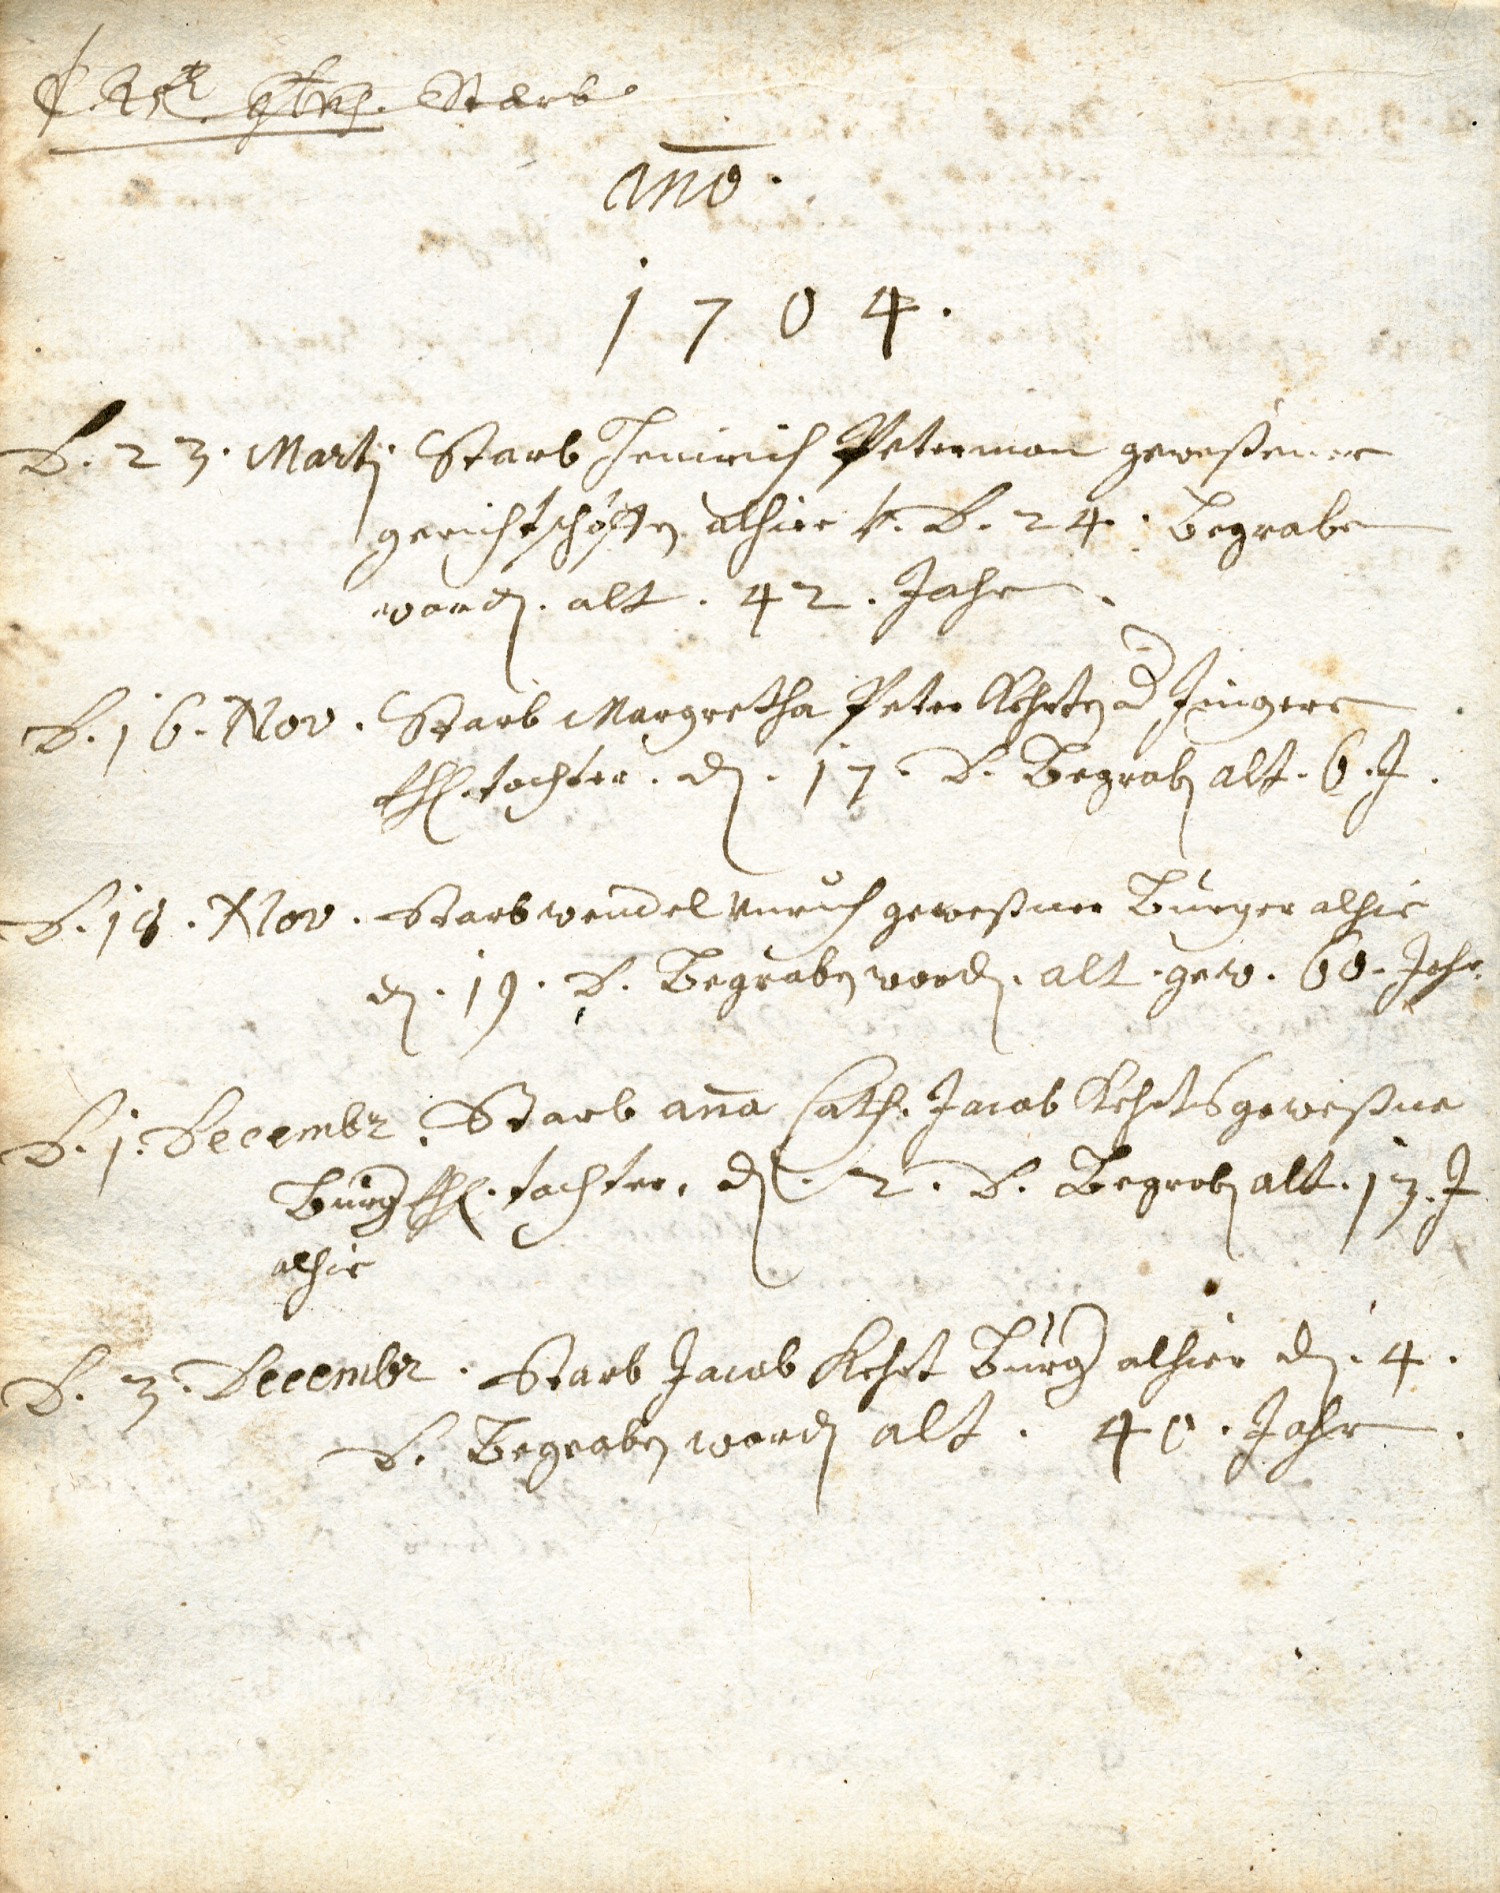 Starb
Ano.
1704.
D. 23. Martj Starb Henirich Peterman geweßener
gerichtschöffen alhier D. 24. Begrabe
word. alt. 42. Jahr.
D. 16. Nov. Starb Margretha Peter Kehrten Jüngere
Ehl. tochter. d. 17. D. Begrab alt. 6. J.
D. 18. Nov. Starb wendel geweßner Burger alhie
d. 19. D. Begraben word. alt. gew. 60. Jahr.
D. 1. Decembr. Starb aña Cath. Jacob Kehrts geweßne
Burg Ehl. tochter. d. 2. D. Begrab alt. 13. J
alhie
D. 3. Decembr. Starb Jacob Kehrt Burg alhier d. 4.
D. Begraben word alt. 40. Jahr.